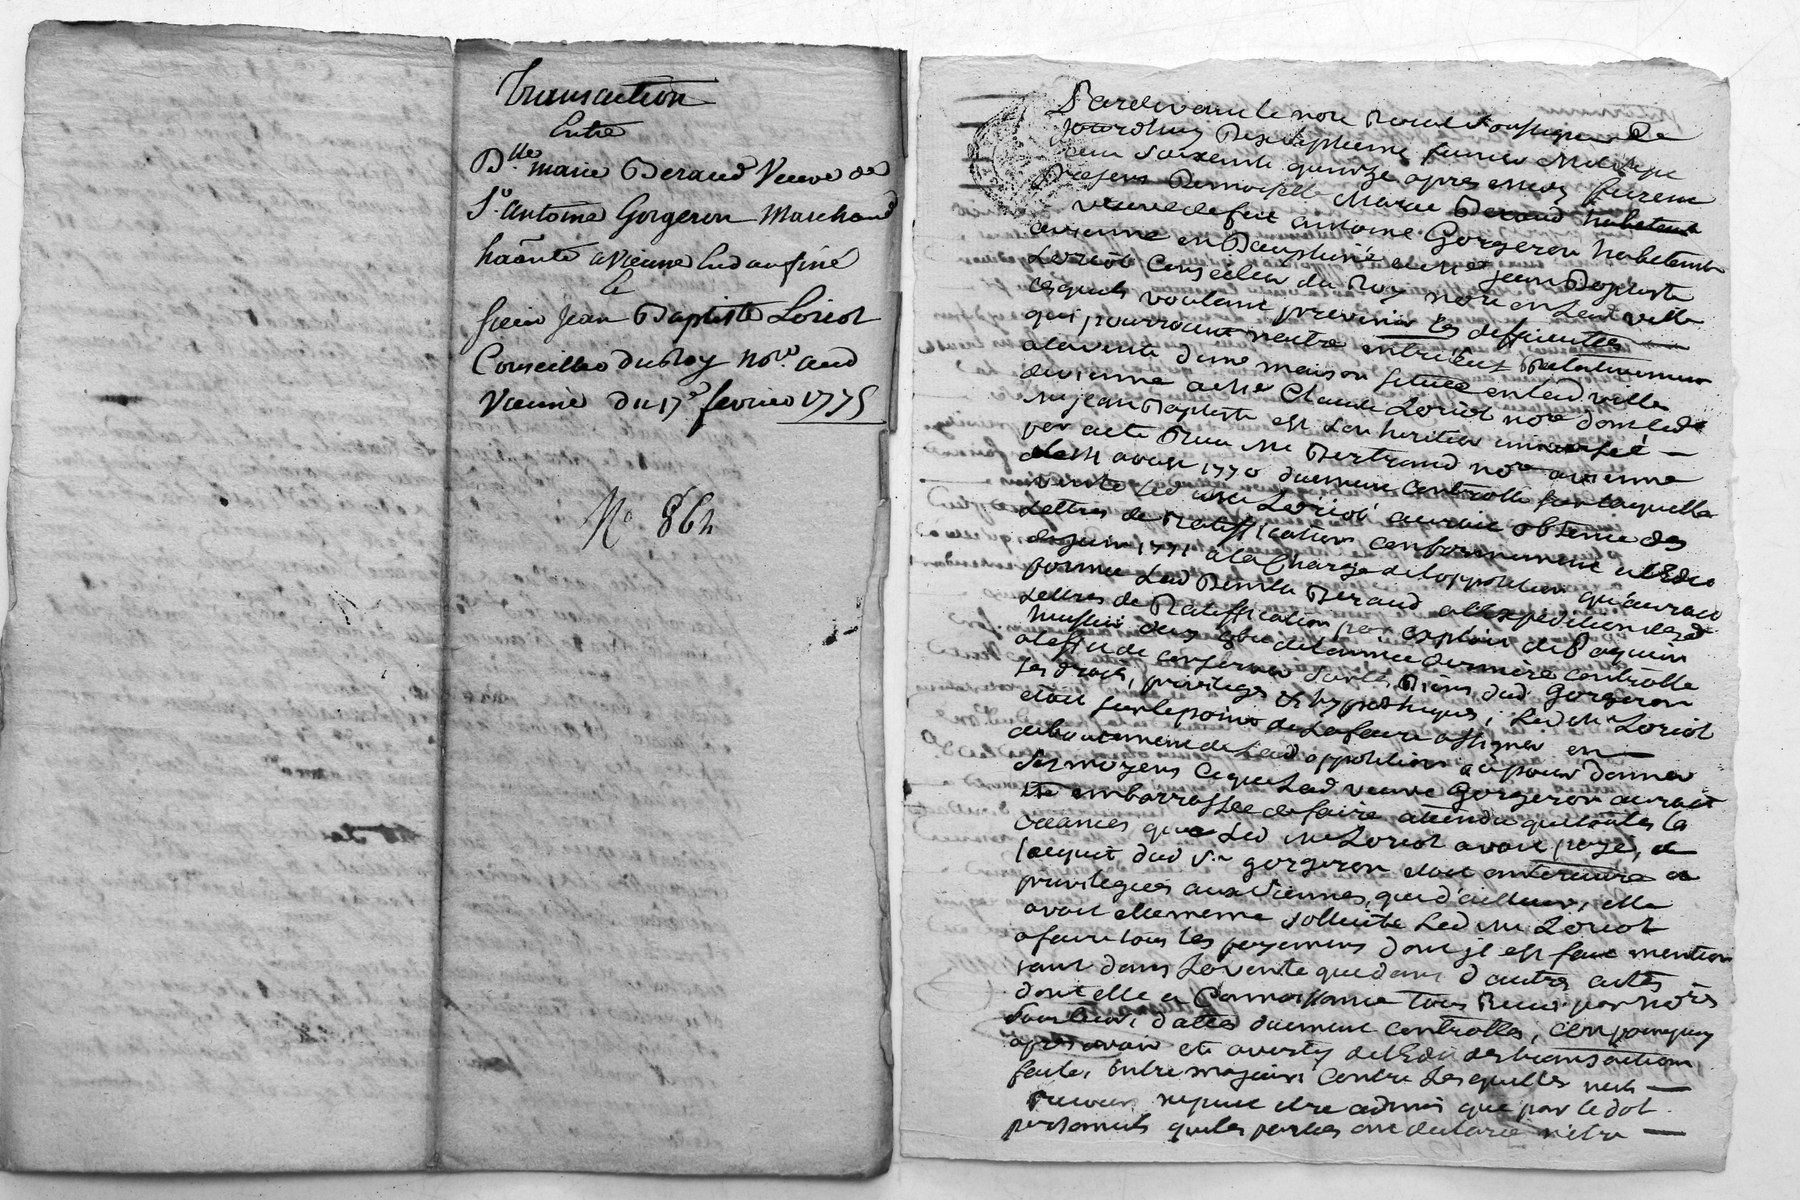 Transaction
Entre
Dlle marie Beraud Veuve de
Sr. antoine Gorgeron Marchand
haânte a Vienne En dauphiné
Et
sieur Jean Baptiste Loriot
Conseiller du Roy Nore. aud
Vienne du 17e fevrier 1775
No 864
Pardevant le nore Royal soussigné Ce
jourdhuy dix septieme fevrier Mil sept
cent soixante quinze apres midy furent
presens Demoiselle Marie Beraud habitant
veuve de feu antoine Gorgeron habitante
avienne en Dauphiné et Me Jean Baptiste
Loriot Conseiller du Roy nore en lad ville
lesquels voulant prevenir les difficultés
qui pourroient naitre entr'eux Relativement
a la vente d'une maison située en lad ville
de vienne a Me Claude Loriot nore dont led
Me jean Baptiste est Son heritier universel
par acte Reçu Me Bertrand nore avienne
le 11 avril 1770 duement Controllé sur laquelle
vente led Me Loriot auroit obtenu des
Lettres de Ratiffication conformement a l'Edit
de juin 1771 a la Charge de l'opposition qu'auroit
formée lad Demlle Beraud a l'expedition desd
Lettres de Ratiffication par exploit de Paquein
huissier du de l'année derniere Controllé
a l'effet de conserver sur les Biens dud Gorgeron
ses droits, privileges et hypotheques, Led Me Loriot
etoit sur le point de la faire assigner en
deboutement de lad opposition a pour donner
ses moyens Ce que Lad veuve Gorgeron auroit
été embarrassée de faire attendu que toutes les
creances que Led Me Loriot avoit payé, a
l'acquit dud Sr gorgeron etoit anterieures et
privilegiées aux siennes, que d'ailleurs, elle
avoit elle meme sollicité Led Me Loriot
a faire tous les payemens dont jl est fait mention
tant dans la vente que dans d'autres actes
dont elle a Connoissance tous Reçus par nores
sous leurs dattes duement controllés, c'est pourquoy
apres avoir eté avertis de l'Edit des transactions
faites Entre majeurs Contre lesquelles nul
recours ne peut etre admis que par le dol
personnel, que les parties ont declaré n'etre